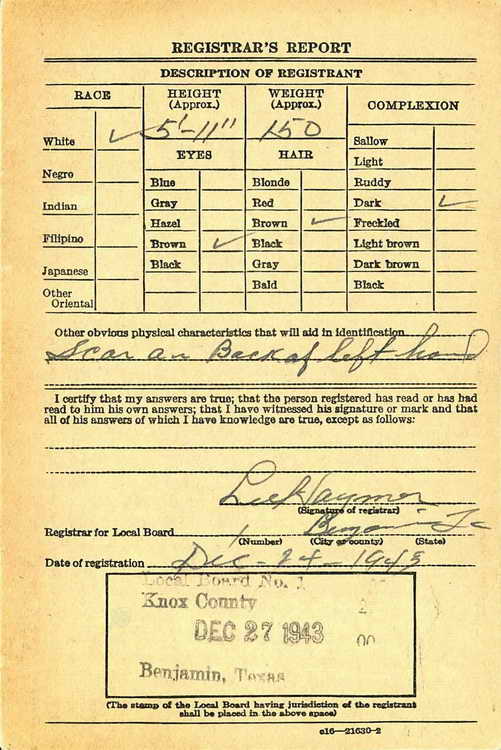 REGISTRAR'S REPORT
DESCRIPTION OF REGISTRANT
RACE
HEIGHT (Approx.)
WEIGHT (Approx.)
COMPLEXION
5'-11"
150
White ✓
EYES
HAIR
Sallow
Light
Negro
Blue
Blonde
Ruddy
Indian
Gray
Red
Dark ✓
Hazel
Brown ✓
Freckled
Filipino
Brown ✓
Black
Light brown
Japanese
Black
Gray
Dark brown
Other Oriental
Bald
Black
Other obvious physical characteristics that will aid in identification
Scar on Back of left hand
I certify that my answers are true; that the person registered has read or has had
read to him his own answers; that I have witnessed his signature or mark and that
all of his answers of which I have knowledge are true, except as follows:
(Signature of registrar)
Registrar for Local Board 1 Benjamin
(Number) (City or county) (State)
Date of registration Dec-24-1943
Local Board No. 1
Knox County
DEC 27 1943
Benjamin, Texas
(The stamp of the Local Board having jurisdiction of the registrant
shall be placed in the above space)
c16—21630-2